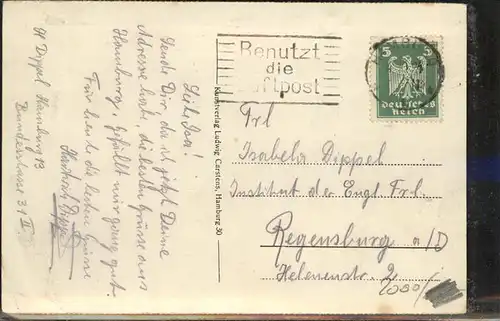 Liebe Isa!
Sende Dir, da ich jetzt Deine
Adresse habe, die besten Grüsse aus
Hamburg, gefällt mir ganz gut.
Für heute die besten Grüsse
Heinrich Dippel
Bundesstrasse 31 II
Hamburg 13
Dippel
Kunstverlag Ludwig Carstens, Hamburg 30
Benutzt
die
Luftpost
5 5
deutsches
reich
Frl
Isabela Dippel
Institut der Engl Frl.
Regensburg a/D
Helenenstr. 2